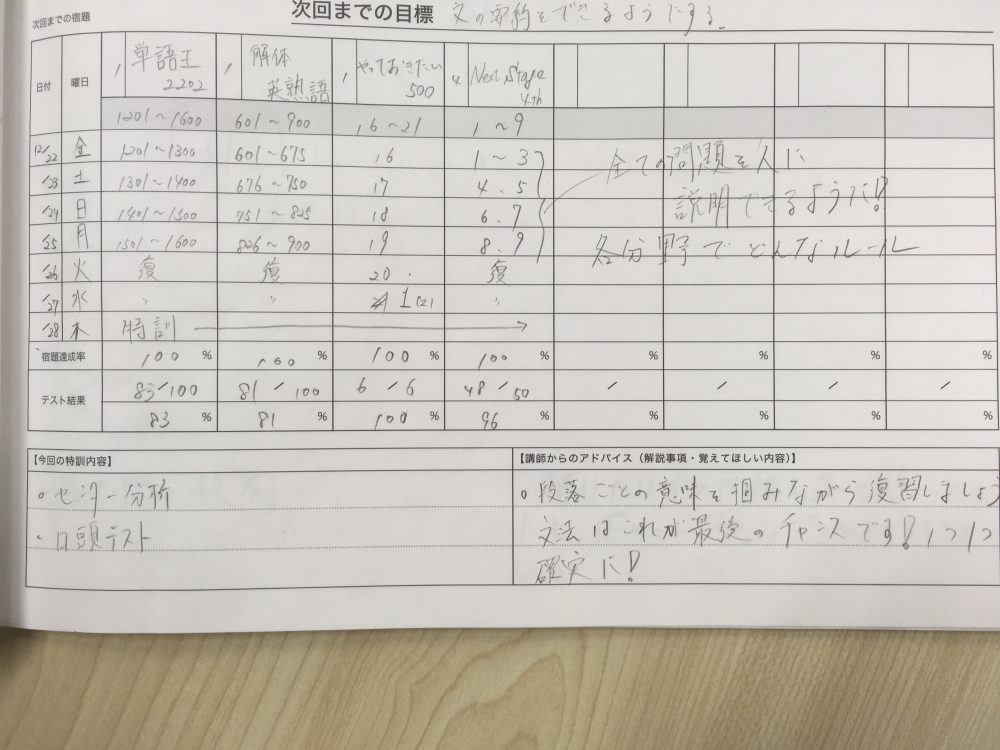 次回までの宿題
次回までの目標 文の要約をできるようにする
日付 曜日 単語王 2202 解体英熟語 やっておきたい500 Next Stage 4th
1201～1600 601～900 16～21 1～9
12/22 金 1201～1300 601～675 16 1～3
/23 土 1301～1400 676～750 17 4.5
/24 日 1401～1500 751～825 18 6.7
/25 月 1501～1600 826～900 19 8.9
全ての問題を人に
説明できるように!!
各分野でどんなルール
/26 火 復 復 20 復
/27 水 〃 〃 1(2) 〃
/28 木 特訓
宿題達成率 100 % 100 % 100 % 100 % % % %
テスト結果 83/100 81/100 6/6 48/50 / / / /
83 % 81 % 100 % 96 % % % %
【今回の特訓内容】
○センター分析
・口頭テスト
【講師からのアドバイス（解説事項・覚えてほしい内容）】
○段落ごとの意味を掴みながら復習しましょう
文法はこれが最後のチャンスです!1つ1つ
確実に!